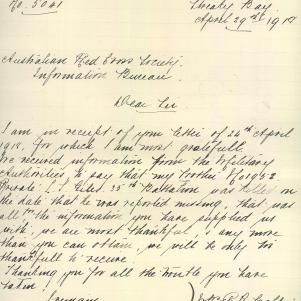 No. 5041
Streaky Bay
April 29th 1918
Australian Red Cross Society
Information Bureau
Dear Sir
I am in receipt of your letter of 26th April
1918, for which I am most gratefull.
We received information from the Military
Authorities to say that my Brother
Private L. J. 35th Battalion was killed on
the date that he was reported missing, that was
all the information you have supplied us
with, we are most thankfull, & any more
than you can obtain, we will be only too
thankfull to receive.
Thanking you for all the trouble you have
taken